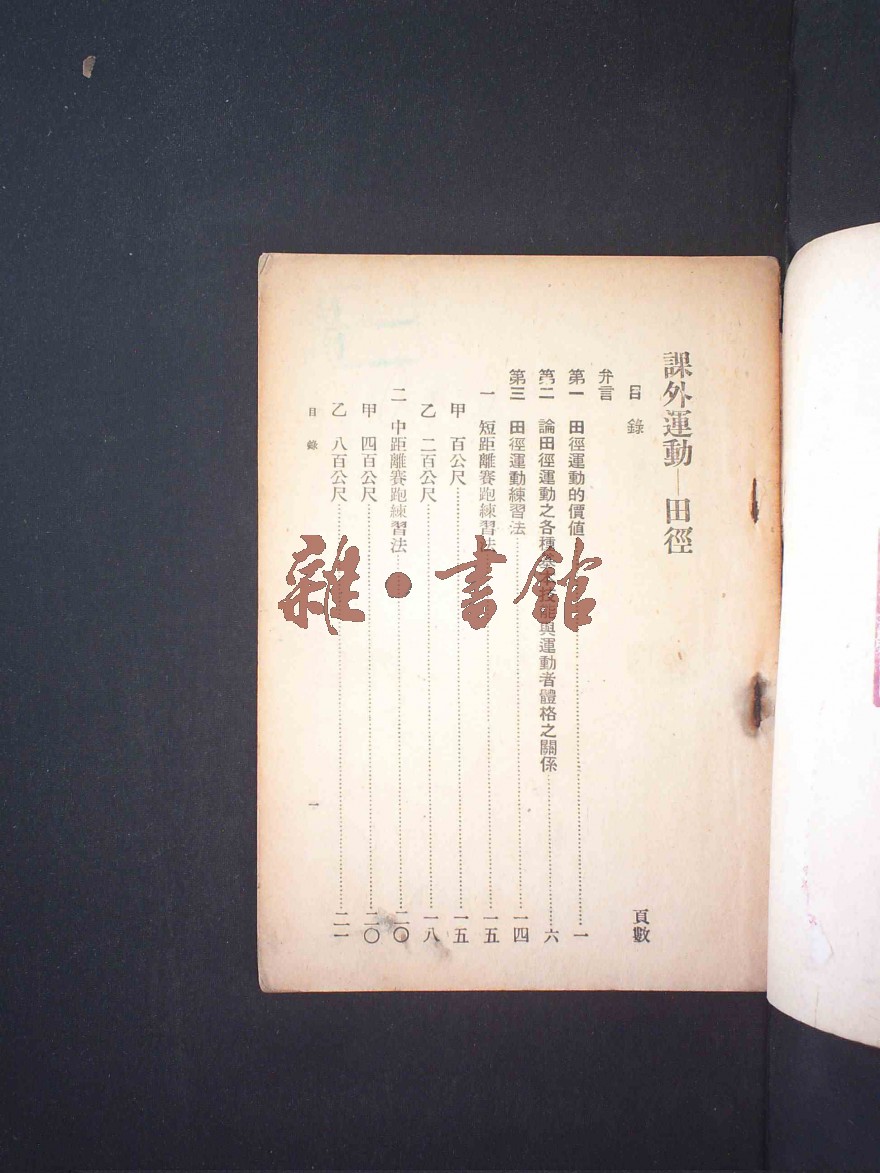 課外運動—田徑
目錄 頁數
弁言
第一 田徑運動的價值 一
第二 論田徑運動之各種基本技能與運動者體格之關係 六
第三 田徑運動練習法 一四
一 短距離賽跑練習法 一五
甲 百公尺 一五
乙 二百公尺 一八
二 中距離賽跑練習法 二〇
甲 四百公尺 二〇
乙 八百公尺 二一
目錄 一
雜·書館